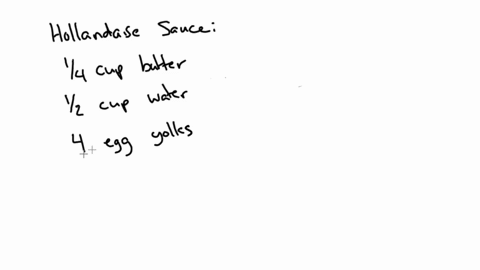 Hollandaise Sauce:
1/4 cup butter
1/2 cup water
4 egg yolks